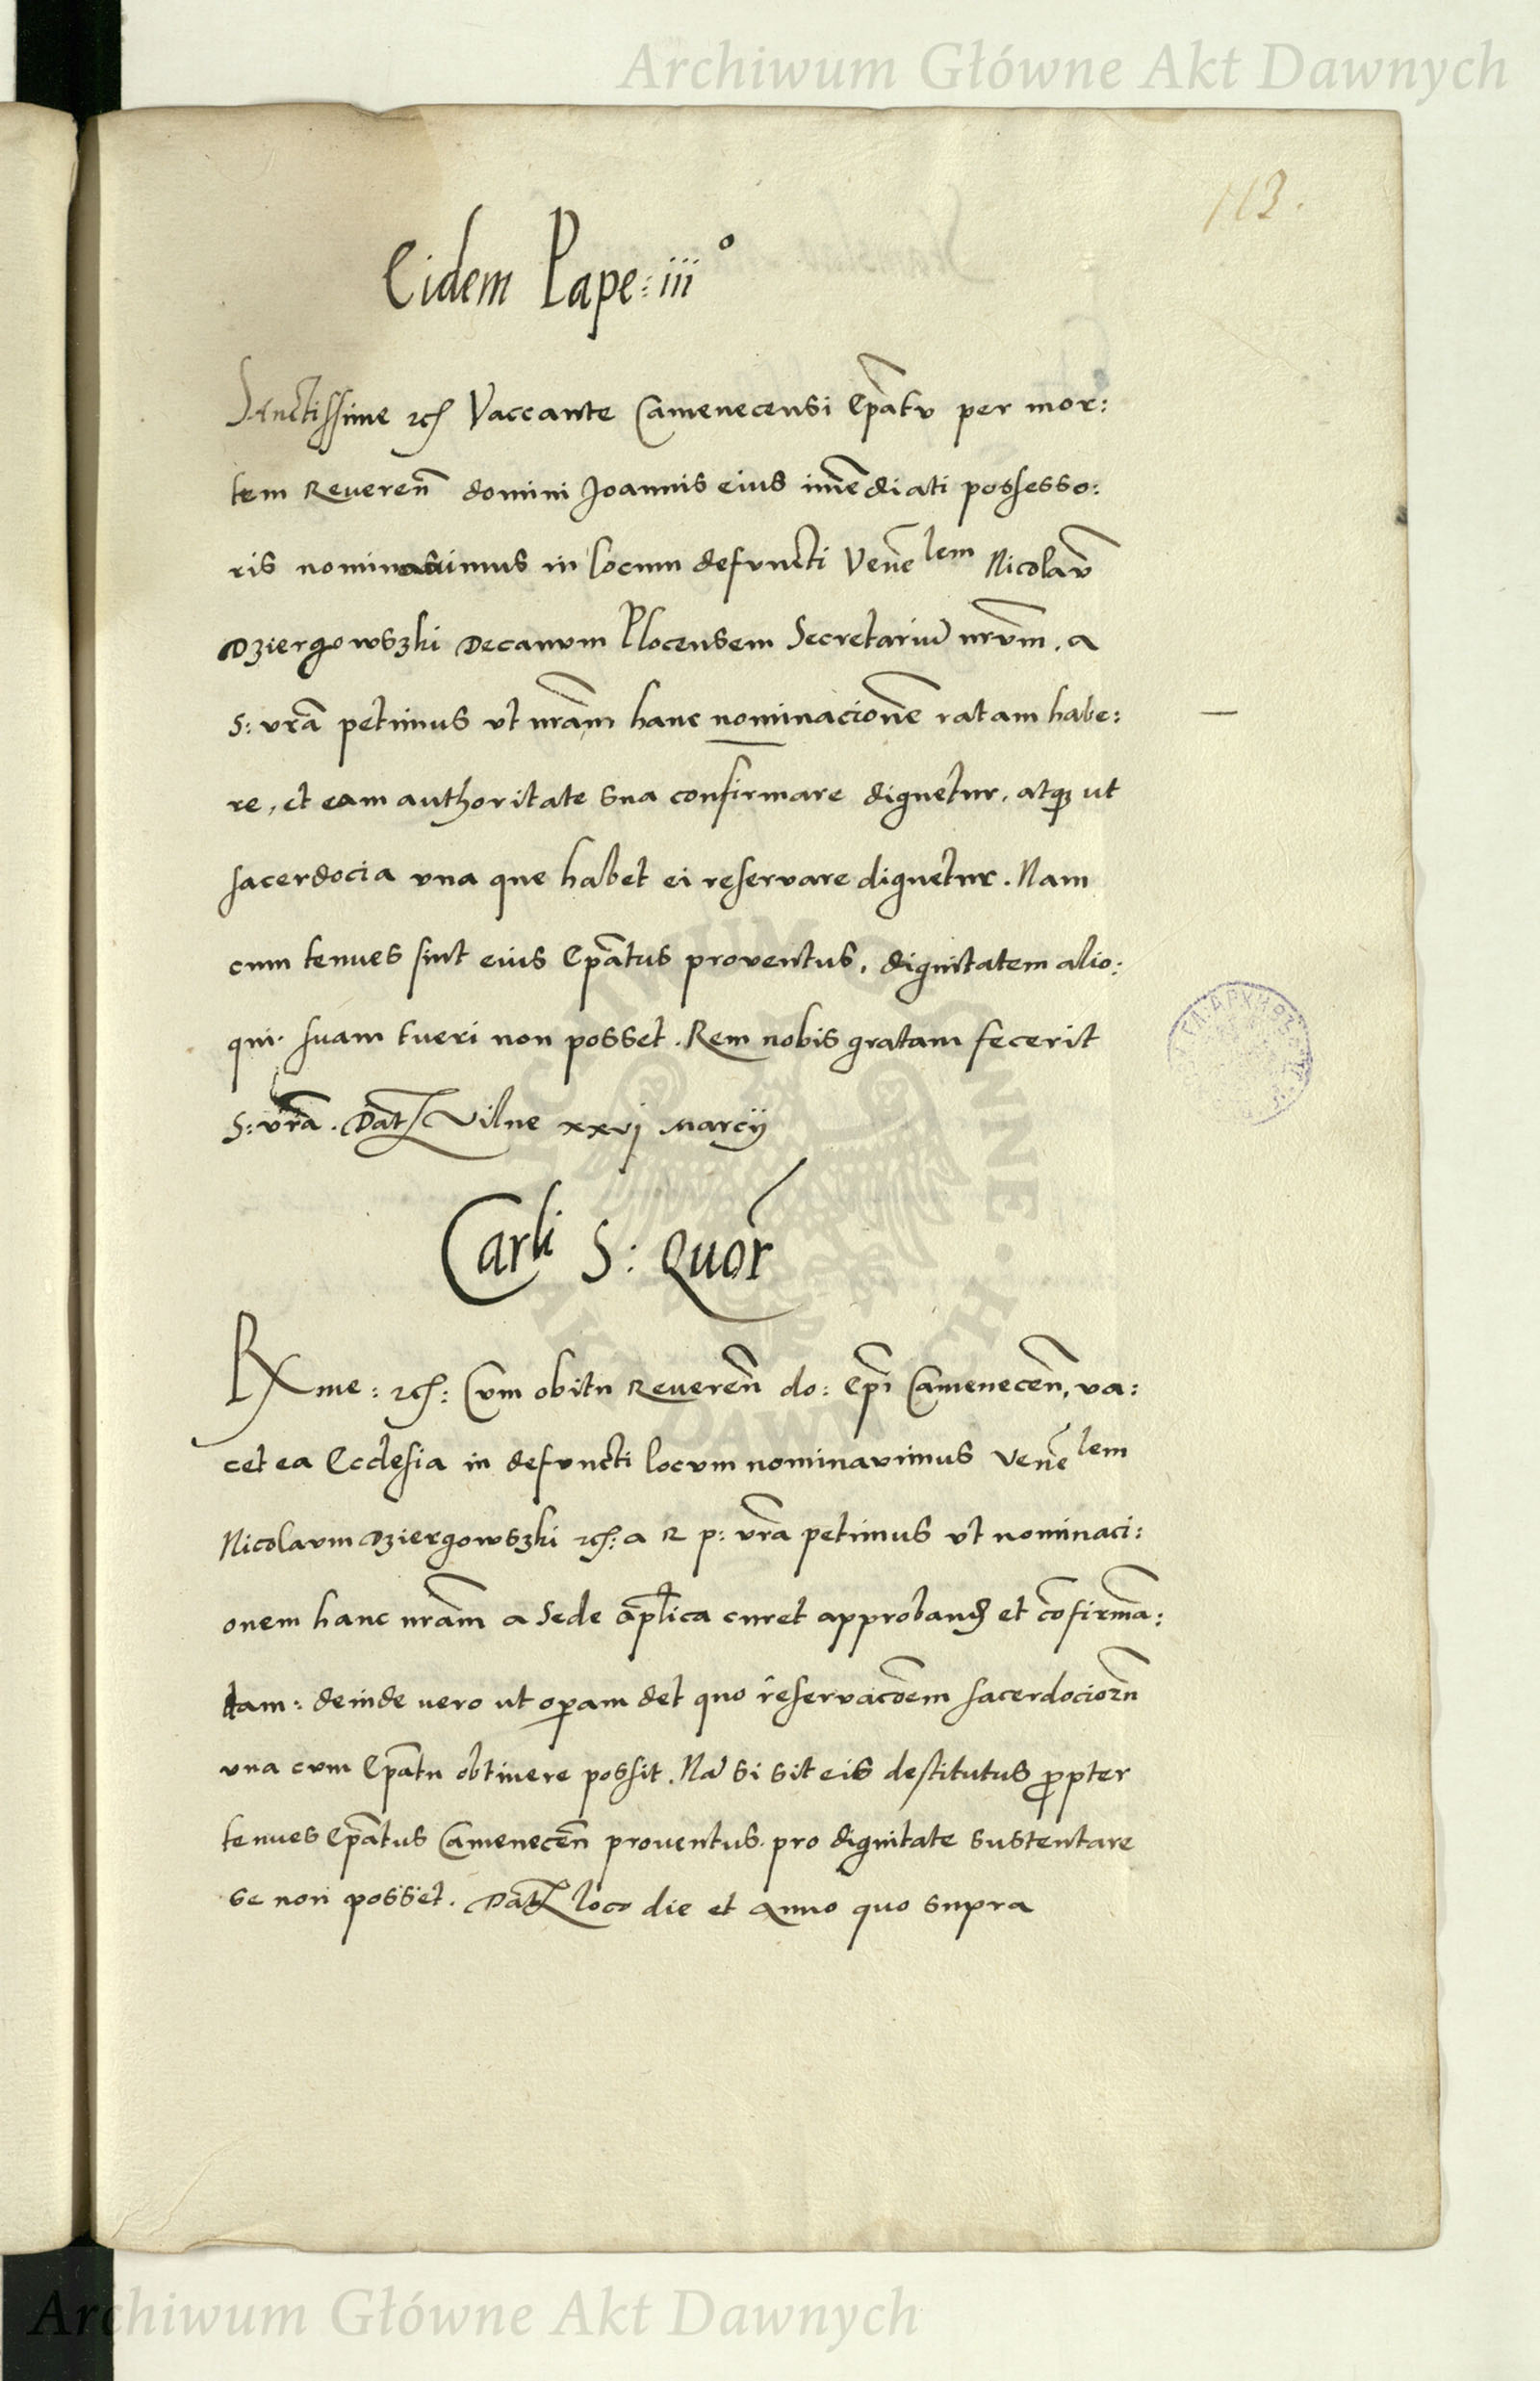 Archiwum Główne Akt Dawnych
113.
Eidem Pape: iii°
Sanctissime etc Vaccante Camenecensi Ep̃atu per mor:
tem Reueren̄ domini Joannis eius im̄ediati possesso:
ris nominauimus in locum defuncti Ven̄elem Nicolaū
Dziergowszki Decanum Plocensem Secretariū nr̄um. a
S: vr̃a petimus vt nr̃am hanc nominacion̄e ratam habe:
re, et eam authoritate sua confirmare dignetur, atqꝫ ut
sacerdocia vna que habet ei reseruare dignetur. Nam
cum tenues sint eius Ep̃atus prouentus, dignitatem alio:
qui suam tueri non posset. Rem nobis gratam fecerit
S: vr̃a. Dat Vilne xxvj Marcij
Carli S: Quor̃
Rx̃me: etc: Cum obitu Reueren̄ do: Ep̃i Camenecen̄, va:
cet ea Ecclesia in defuncti locum nominauimus Ven̄elem
Nicolaum Dziergowszki etc: a R p: vr̃a petimus vt nominaci:
onem hanc nr̃am a Sede ap̃lica curet approband̄ et cōfirma:
dam: deinde uero ut operam det quo reseruacōem sacerdociorū
vna cum Ep̃atu obtinere possit. Nā si sit eis destitutus propter
tenues Ep̃atus Camenecen̄ prouentus. pro dignitate sustentare
se non posset. Dat loco die et anno quo supra
Archiwum Główne Akt Dawnych